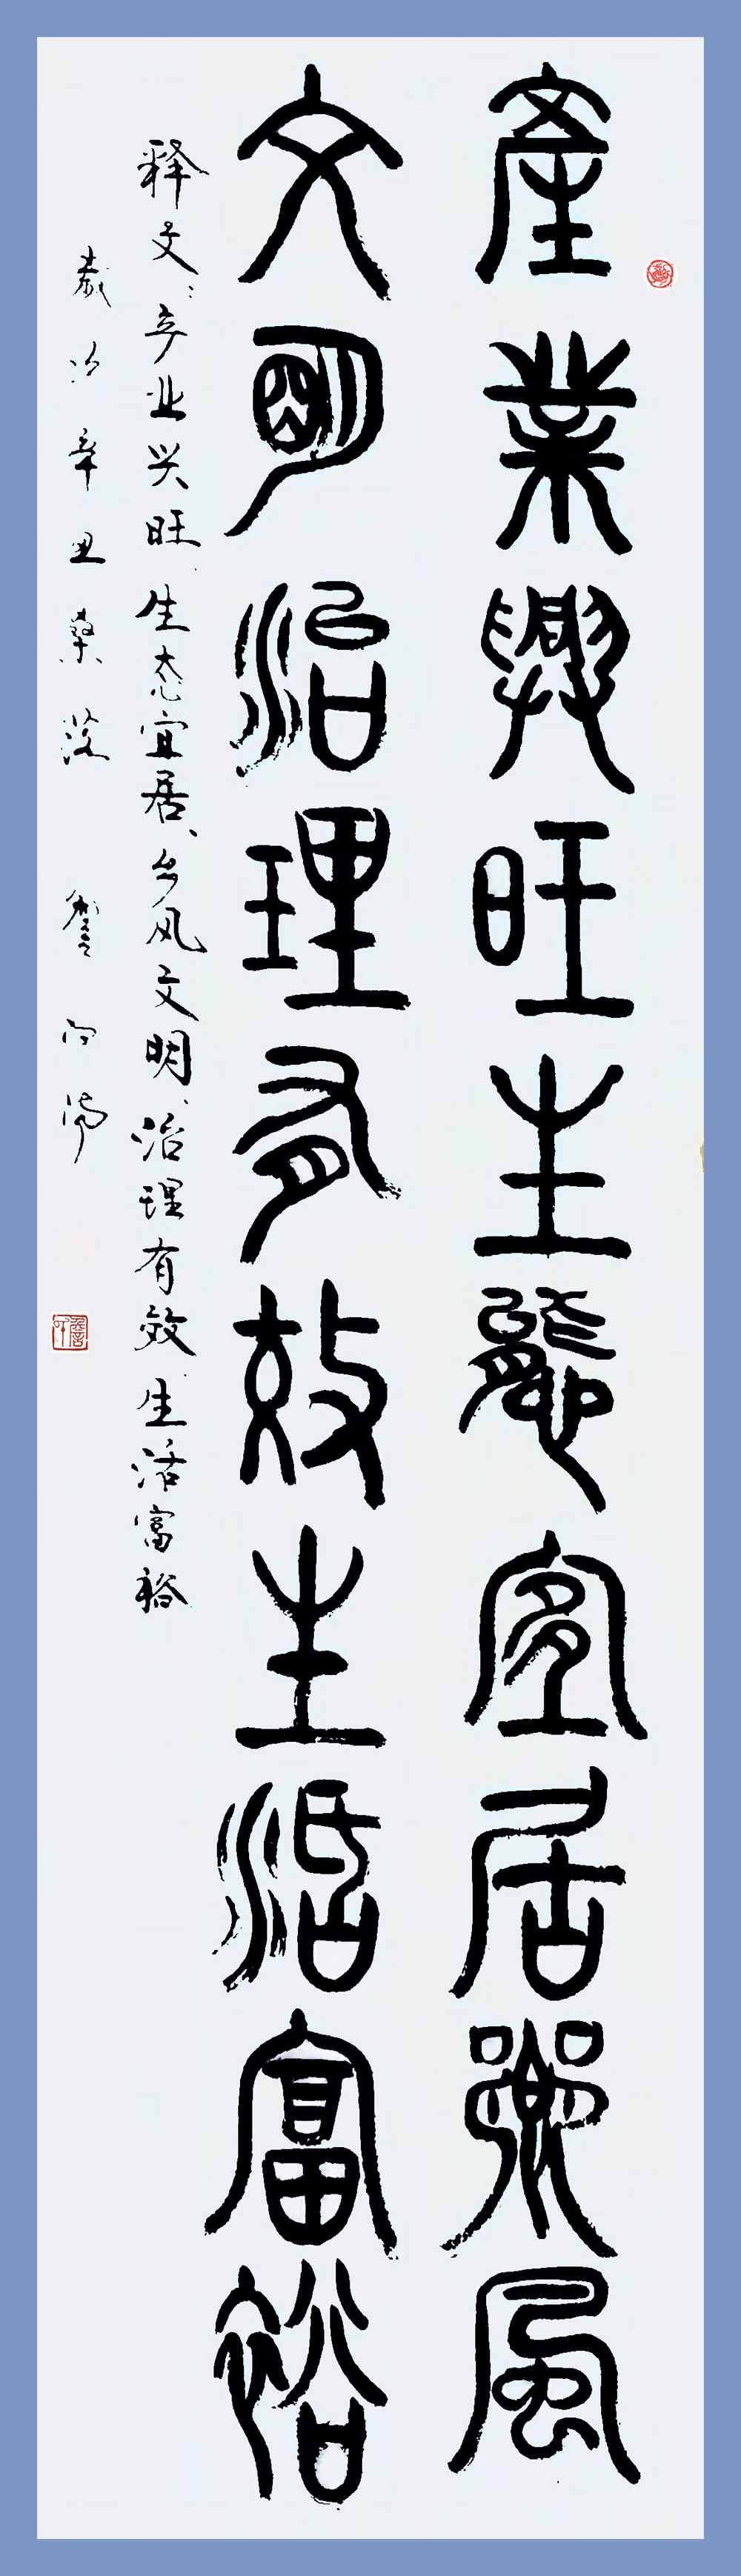 產業興旺生態宜居鄉風
文明治理有效生活富裕
释文：产业兴旺、生态宜居、乡风文明、治理有效、生活富裕
岁次辛丑桑